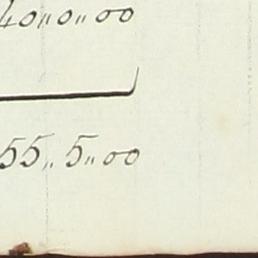 40,,0,,00
55,,5,,00